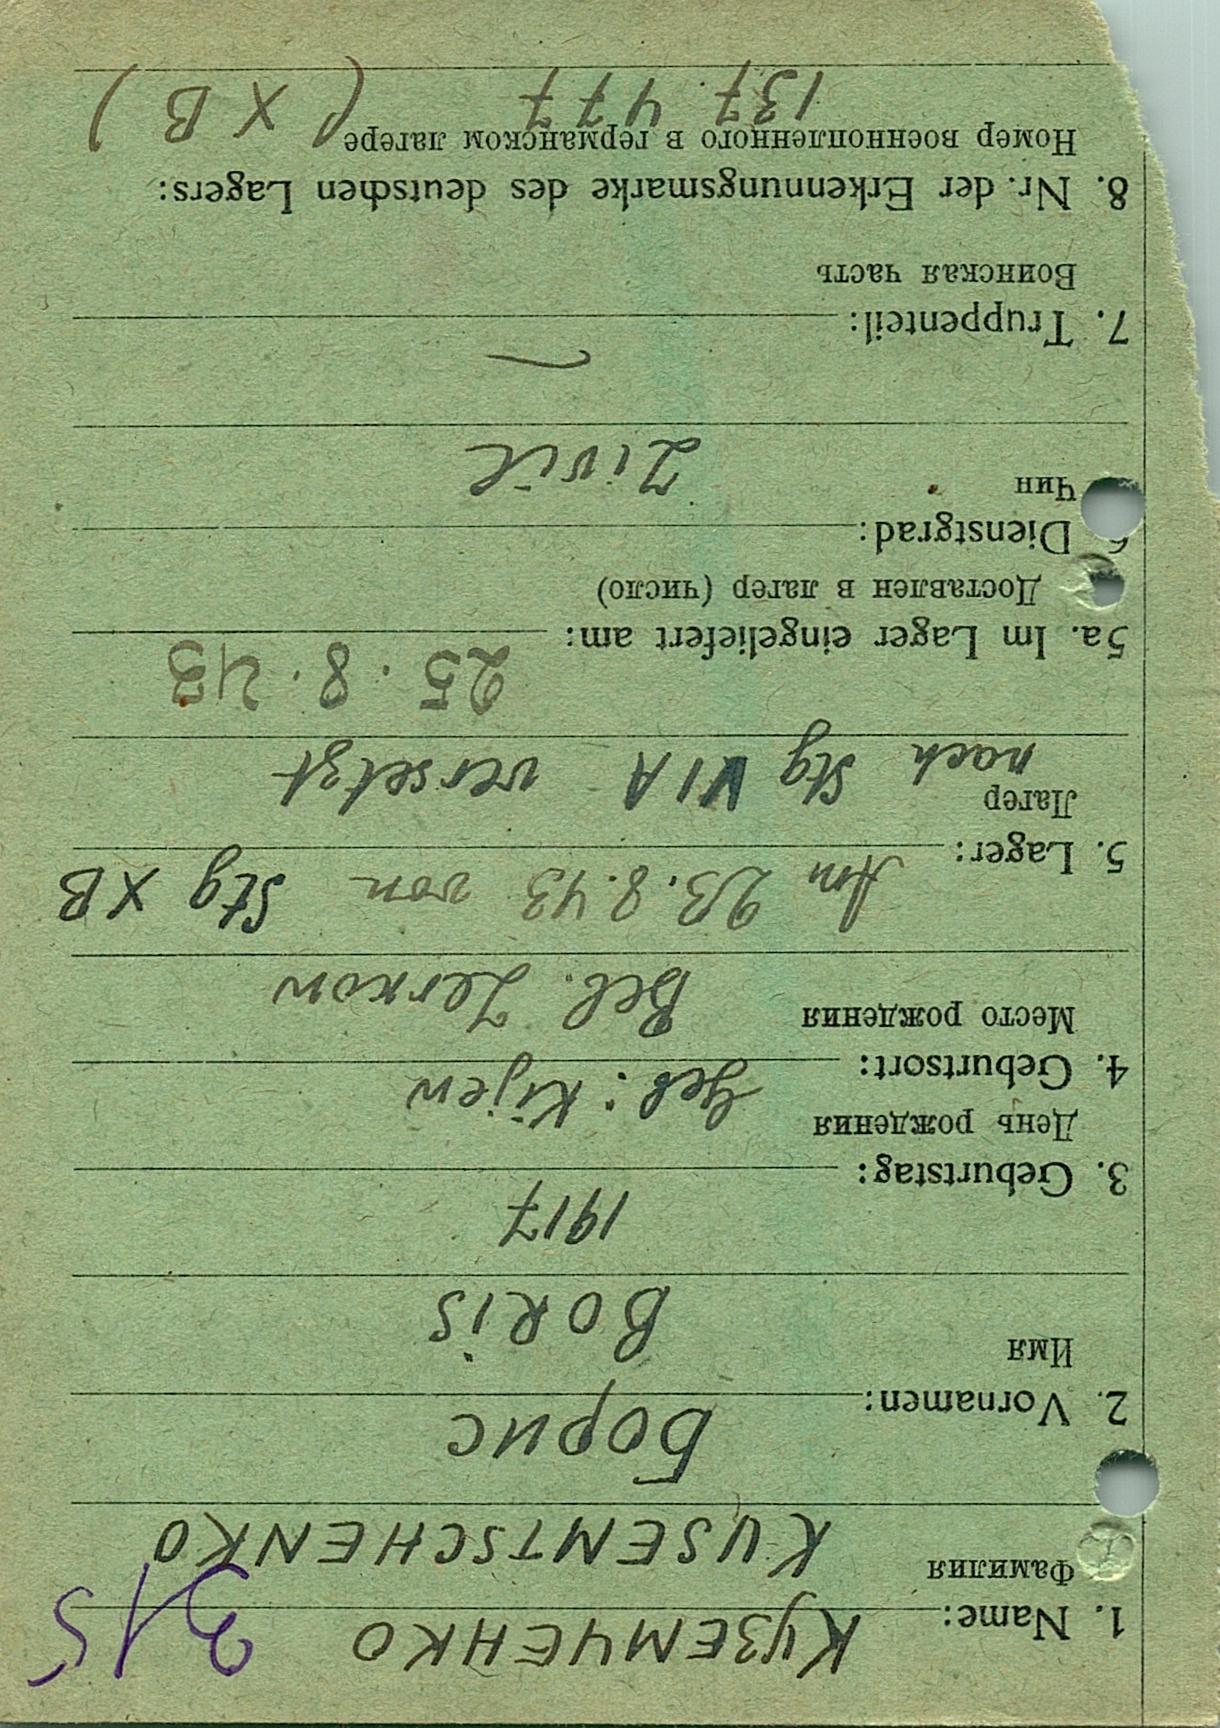 315
1. Name: Куземченко
Фамилия
KUSEMTSCHENKO
2. Vornamen: Борис
Имя
BORIS
3. Geburtstag: 1917
День рождения
geb: Kijew
4. Geburtsort:
Место рождения
Bel. Zerkow
5. Lager: Am 23.8.43 von Stg XB
Лагер
nach Stg VIA versetzt
5a. Im Lager eingeliefert am: 25.8.43
Доставлен в лагер (число)
6. Dienstgrad:
Чин
Zivil
7. Truppenteil:
Воинская часть
8. Nr. der Erkennungsmarke des deutschen Lagers:
Номер военнопленного в германском лагере
137.477 (XB)